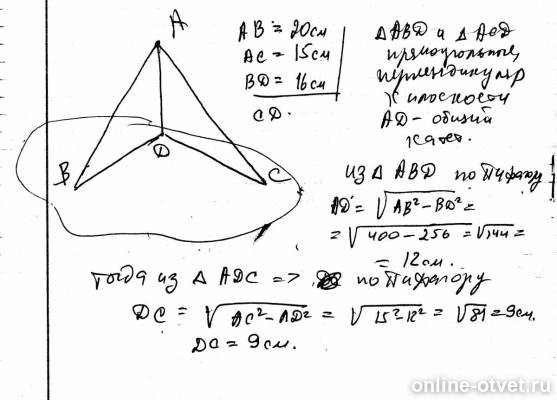 A
B
D
C
AB = 20см
AC = 15см
BD = 16см
CD.
△ABD и △ACD
прямоугольные,
перпендикуляр
к плоскости
AD - общий
катет.
из △ ABD по Пифагору
AD = √AB² - BD² =
= √400 - 256 = √144 =
= 12см.
Тогда из △ ADC => по Пифагору
DC = √AC² - AD² = √15² - 12² = √81 = 9см.
DC = 9см.
online-otvet.ru